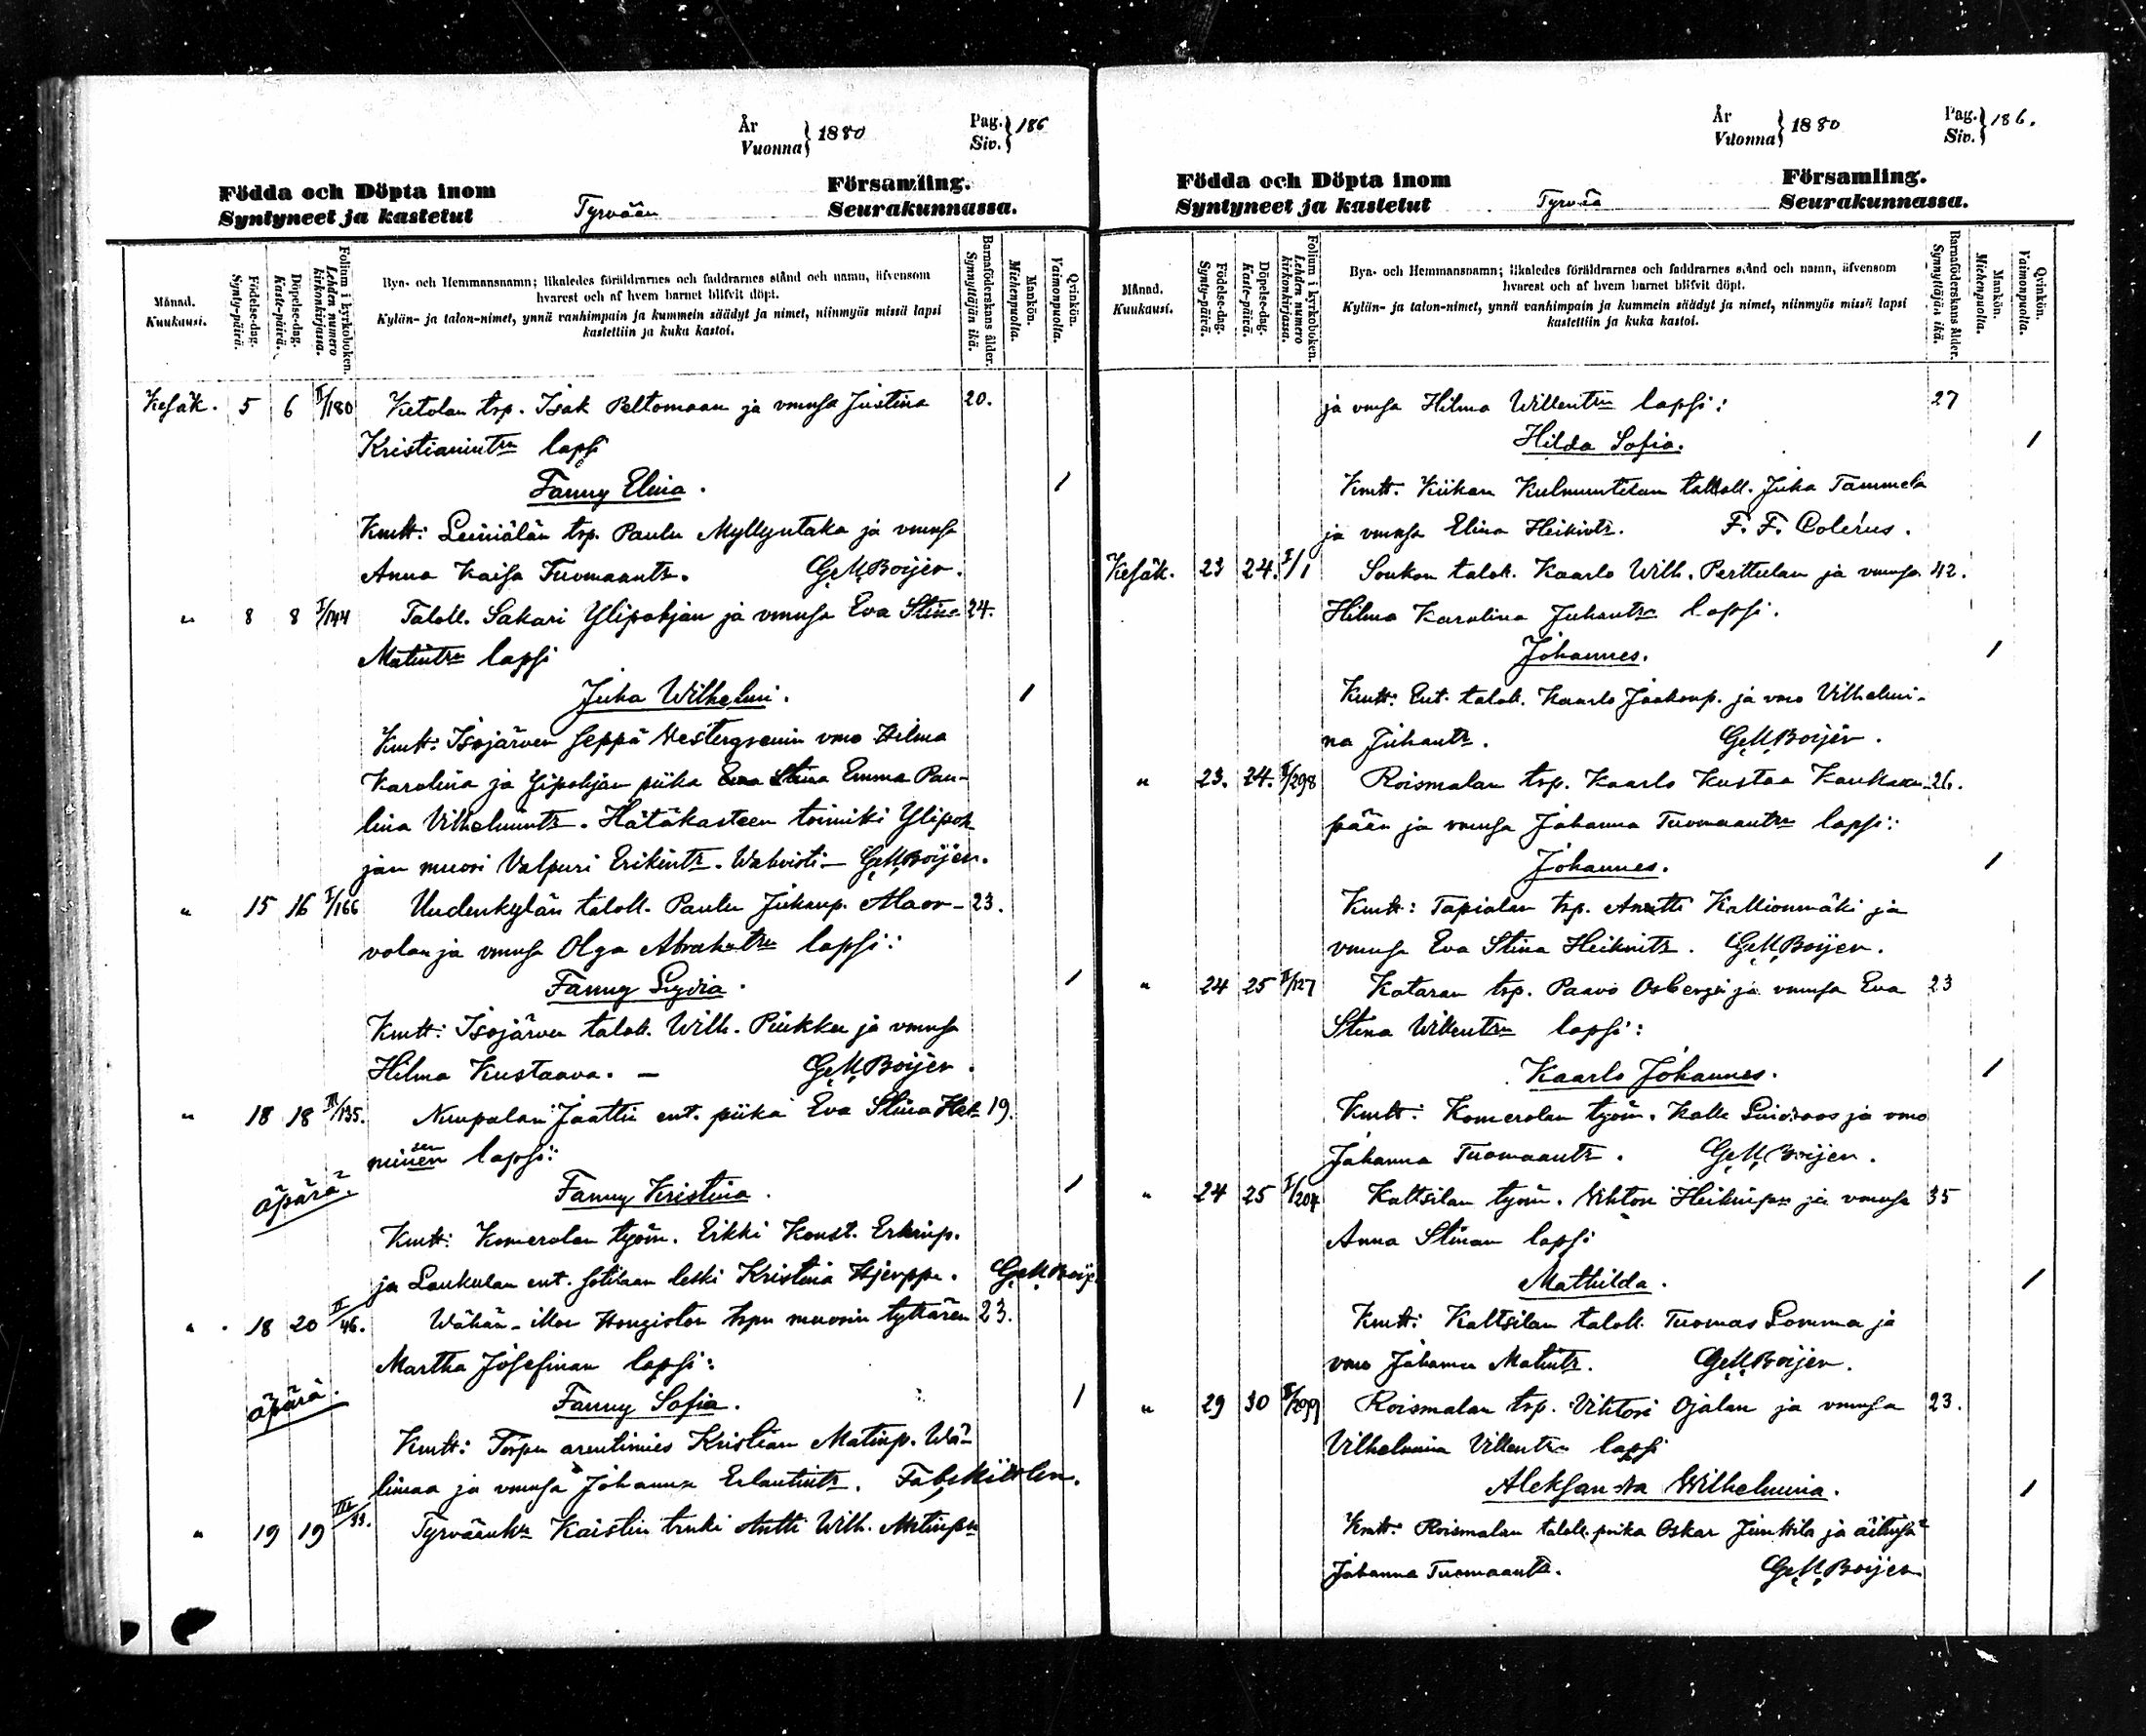 År
Vuonna } 1880
Pag.
Siv. } 186
Födda och Döpta inom
Syntyneet ja kastetut
Tyrvään
Församling.
Seurakunnassa.
Månad.
Kuukausi.
Födelse-dag.
Synty-päivä.
Döpelse-dag.
Kaste-päivä.
Folium i kyrkoboken.
Lehden numero kirkonkirjassa.
Byn- och Hemmansnamn; likaledes föräldrarnes och faddrarnes stånd och namn, äfvensom
hvarest och af hvem barnet blifvit döpt.
Kylän- ja talon-nimet, ynnä vanhimpain ja kummein säädyt ja nimet, niinmyös missä lapsi
kastettiin ja kuka kastoi.
Barnaföderskans ålder.
Synnyttäjän ikä.
Mankön.
Miehenpuolta.
Qvinkön.
Vaimonpuolta.
Kesäk. 5 6 II/180 Ketolan trp. Isak Peltomaan ja vmnsa Justina 20.
Kristianintrn lapsi
Fanny Elina. 1
Kmtt: trp. Paulu Myllyntaka ja vmnsa
Anna Kaisa Tuomaantr. G. M. Boijer.
" 8 8 I/144 Taloll. Sakari Ylipohjan ja vmnsa Eva Stina 24.
Matintrn lapsi
Juha Wilhelmi. 1
Kmtt: Isojärven seppä Vestergrenin vmo Hilma
Karolina ja Ylipohjan piika Eva Stina Emma Pau-
lina Vilhelmintr. Hätäkasteen toimitti Ylipoh
jan muori Valpuri Erikintr. Wahvisti G. M. Boijer.
" 15 16 I/166 Uudenkylän taloll. Paulu Juhanp. Alaor- 23.
volan ja vmnsa Olga Abrahatrn lapsi:
Fanny Lydia. 1
Kmtt: Isojärven taloll. Wilh. Piukka ja vmnsa
Hilma Kustaava. — G. M. Boijer.
" 18 18 III/135. Nuupalan Jaatti ent. piika Eva Stina Hei 19.
minen lapsi:
äpärä. Fanny Kristina. 1
Kmtt: Komerolan työm. Erkki Konst. Erkinp.
ja Laukulan ent. sotilaan leski Kristina Hjerppe. G. M. Boije
" 18 20 II/46. Wähän-illon Hongiston trpn muorin tyttären 23.
Martha Josefinan lapsi:
äpärä. Fanny Sofia. 1
Kmtt: Torpan arentimies Kristian Matinp. Wä-
limaa ja vmnsa Johanna Erlantintr.
" 19 19 III/33. Kaistin trnki Antti Wilh. Matinpn
År
Vuonna } 1880
Pag.
Siv. } 186.
Födda och Döpta inom
Syntyneet ja kastetut
Tyrvää
Församling.
Seurakunnassa.
Månad.
Kuukausi.
Födelse-dag.
Synty-päivä.
Döpelse-dag.
Kaste-päivä.
Folium i kyrkoboken.
Lehden numero kirkonkirjassa.
Byn- och Hemmansnamn; likaledes föräldrarnes och faddrarnes stånd och namn, äfvensom
hvarest och af hvem barnet blifvit döpt.
Kylän- ja talon-nimet, ynnä vanhimpain ja kummein säädyt ja nimet, niinmyös missä lapsi
kastettiin ja kuka kastoi.
Barnaföderskans ålder.
Synnyttäjän ikä.
Mankön.
Miehenpuolta.
Qvinkön.
Vaimonpuolta.
ja vmsa Hilma Willentrn lapsi: 27
Hilda Sofia. 1
Kmtt. Kiikan Kulmuntilan taloll. Juha Tammela
ja vmnsa Elina Heikintr. F. F. Colérus.
Kesäk. 23 24. I/1 Soukon taloll. Kaarlo Wilh. Perttulan ja vmnsa 42.
Hilma Karolina Juhantrn lapsi.
Johannes. 1
Kmtt: Ent. taloll. Kaarlo Jaakonp. ja vmo Vilhelmi-
na Juhantr. G. M. Boijer.
" 23. 24. II/298 Roismalan trp. Kaarlo Kustaa Kaukaan- 26.
pään ja vmnsa Johanna Tuomaantrn lapsi:
Johannes. 1
Kmtt: Tapiolan trp. Anutti Kallionmäki ja
vmnsa Eva Stina Heikintr. G. M. Boijer.
" 24 25 II/127 Kataran trp. Paavo Osbergi ja vmnsa Eva 23
Stina Willentrn lapsi:
Kaarlo Johannes. 1
Kmtt: Komerolan työm. Kalle Lindroos ja vmo
Johanna Tuomaantr. G. M. Boijer.
" 24 25 I/204 Kaltsilan työm. Vihtori Heikinpn ja vmnsa 35
Anna Stinan lapsi
Mathilda. 1
Kmtt: Kaltsilan taloll. Tuomas Lomma ja
vmo Johanna Matintr. G. M. Boijer.
" 29 30 II/299 Roismalan trp. Vihtori Ojalan ja vmnsa 23.
Vilhelmina Villentrn lapsi
Aleksandra Wilhelmina. 1
Kmtt: Roismalan taloll. poika Oskar Junttila ja äitinsä
Johanna Tuomaantr. G. M. Boijer